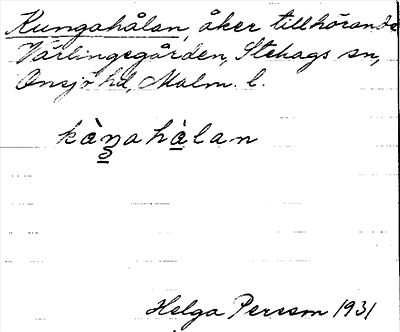 Kungahålan, åker tillhörande
Värlingegården, Stehags sn,
Onsjö hd, Malm. l.
kàŋahàlan
Helga Persson 1931